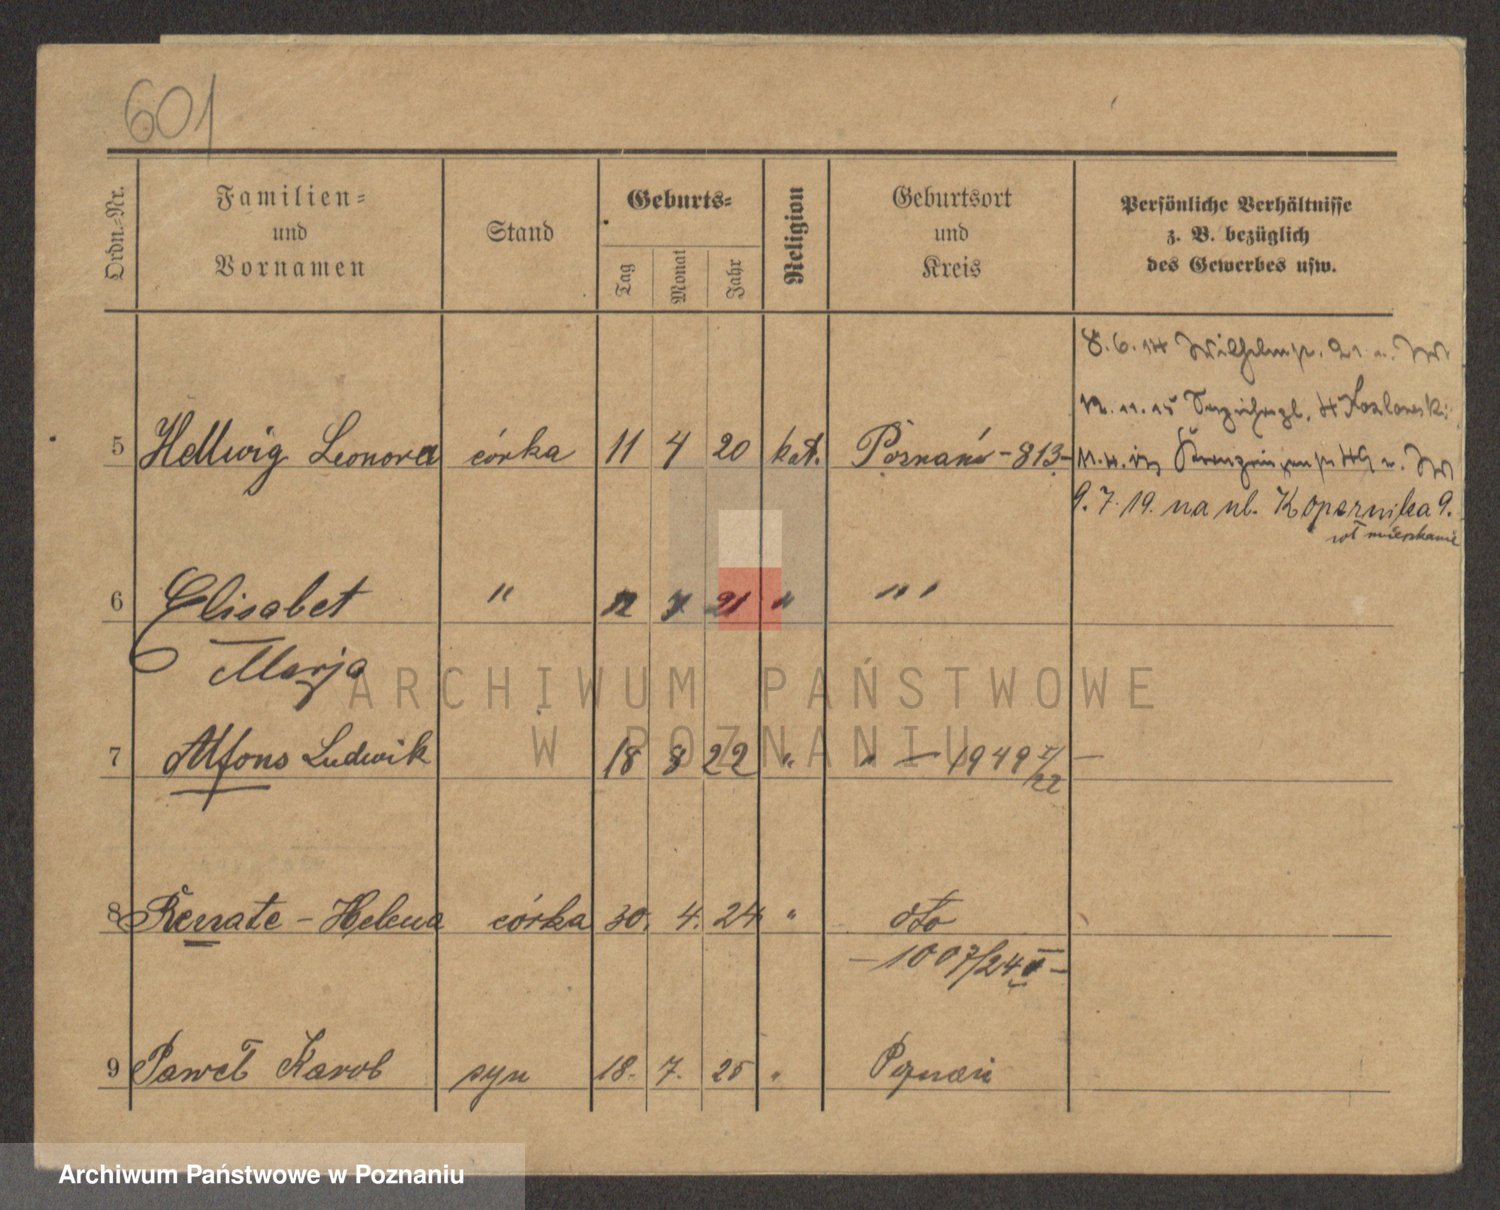 601
Ordn.-Nr.
Familien-
und
Vornamen
Stand
Geburts-
Tag
Monat
Jahr
Religion
Geburtsort
und
Kreis
Persönliche Verhältnisse
z. B. bezüglich
des Gewerbes usw.
8. 6. 14 Wilhelmstr. 21
5 Hellwig Leonora córka 11 4 20 kat. Poznań - 813 -
12. 11. 15 Kozlowski
9. 7. 19. na ul. Kopernika 9.
mieszkanie
6 Elisabet " 12 7 21 " " "
Marja
7 Alfons Ludwik 18 8 22 " " - 1949 I/22 -
8 Renate - Helena córka 30. 4. 24 " dto
- 1007/24 II -
9 Paweł Karol syn 18. 7. 25 " Poznań
ARCHIWUM PAŃSTWOWE
W POZNANIU
Archiwum Państwowe w Poznaniu